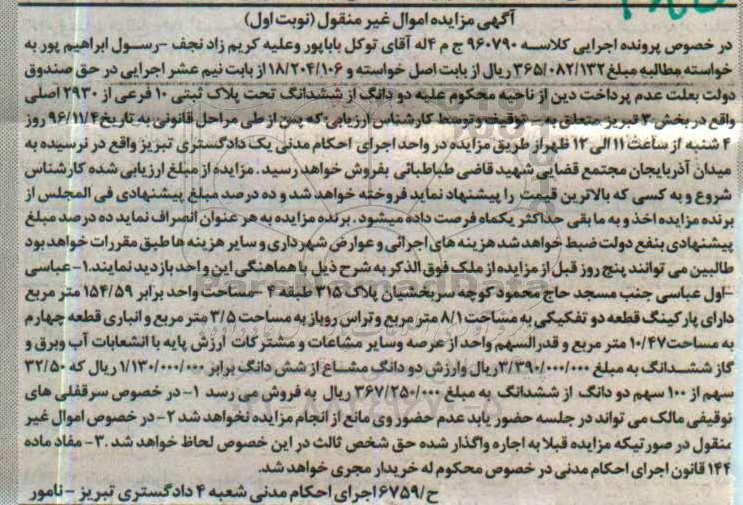 آگهی مزایده اموال غیر منقول (نوبت اول)
در خصوص پرونده اجرایی کلاسه ۹۶۰۷۹۰ ج م ۴ له آقای توکل باباپور وعلیه کریم زاد نجف -رسول ابراهیم پور به
خواسته مطالبه مبلغ ۳۶۵/۰۸۲/۱۳۲ ریال از بابت اصل خواسته و ۱۸/۲۰۴/۱۰۶ از بابت نیم عشر اجرایی در حق صندوق
دولت بعلت عدم پرداخت دین از ناحیه محکوم علیه دو دانگ از ششدانگ تحت پلاک ثبتی ۱۰ فرعی از ۲۹۳۰ اصلی
واقع در بخش ۳ تبریز متعلق به ... توقیف وتوسط کارشناس ارزیابی که پس از طی مراحل قانونی به تاریخ ۹۶/۱۱/۴ روز
۴ شنبه از ساعت ۱۱ الی ۱۲ ظهر از طریق مزایده در واحد اجرای احکام مدنی یک دادگستری تبریز واقع در نرسیده به
میدان آذربایجان مجتمع قضایی شهید قاضی طباطبائی بفروش خواهد رسید . مزایده از مبلغ ارزیابی شده کارشناس
شروع و به کسی که بالاترین قیمت را پیشنهاد نماید فروخته خواهد شد و ده درصد مبلغ پیشنهادی فی المجلس از
برنده مزایده اخذ و به ما بقی حداکثر یکماه فرصت داده میشود . برنده مزایده به هر عنوان انصراف نماید ده درصد مبلغ
پیشنهادی بنفع دولت ضبط خواهد شد هزینه های اجرائی و عوارض شهرداری و سایر هزینه ها طبق مقررات خواهد بود
طالبین می توانند پنج روز قبل از مزایده از ملک فوق الذکر به شرح ذیل با هماهنگی این واحد بازدید نمایند.۱-عباسی
-اول عباسی جنب مسجد حاج محمود کوچه سربخشیان پلاک ۳۱۵ طبقه ۴ -مساحت واحد برابر ۱۵۴/۵۹ متر مربع
دارای پارکینگ قطعه دو تفکیکی به مساحت ۸/۱ متر مربع و تراس روباز به مساحت ۳/۵ متر مربع و انباری قطعه چهارم
به مساحت ۱۰/۴۷ متر مربع و قدرالسهم واحد از عرصه وسایر مشاعات و مشترکات ارزش پایه با انشعابات آب وبرق و
گاز ششدانگ به مبلغ ۳/۳۹۰/۰۰۰/۰۰۰ ریال وارزش دو دانگ مشاع از شش دانگ برابر ۱/۱۳۰/۰۰۰/۰۰۰ ریال که ۳۲/۵۰
سهم از ۱۰۰ سهم دو دانگ از ششدانگ به مبلغ ۳۶۷/۲۵۰/۰۰۰ ریال به فروش می رسد ۱- در خصوص سرقفلی های
توقیفی مالک می تواند در جلسه حضور یابد عدم حضور وی مانع از انجام مزایده نخواهد شد ۲- در خصوص اموال غیر
منقول در صورتیکه مزایده قبلا به اجاره واگذار شده حق شخص ثالث در این خصوص لحاظ خواهد شد .۳- مفاد ماده
۱۴۴ قانون اجرای احکام مدنی در خصوص محکوم له خریدار مجری خواهد شد.
ح/۶۷۵۹ اجرای احکام مدنی شعبه ۴ دادگستری تبریز - نامور